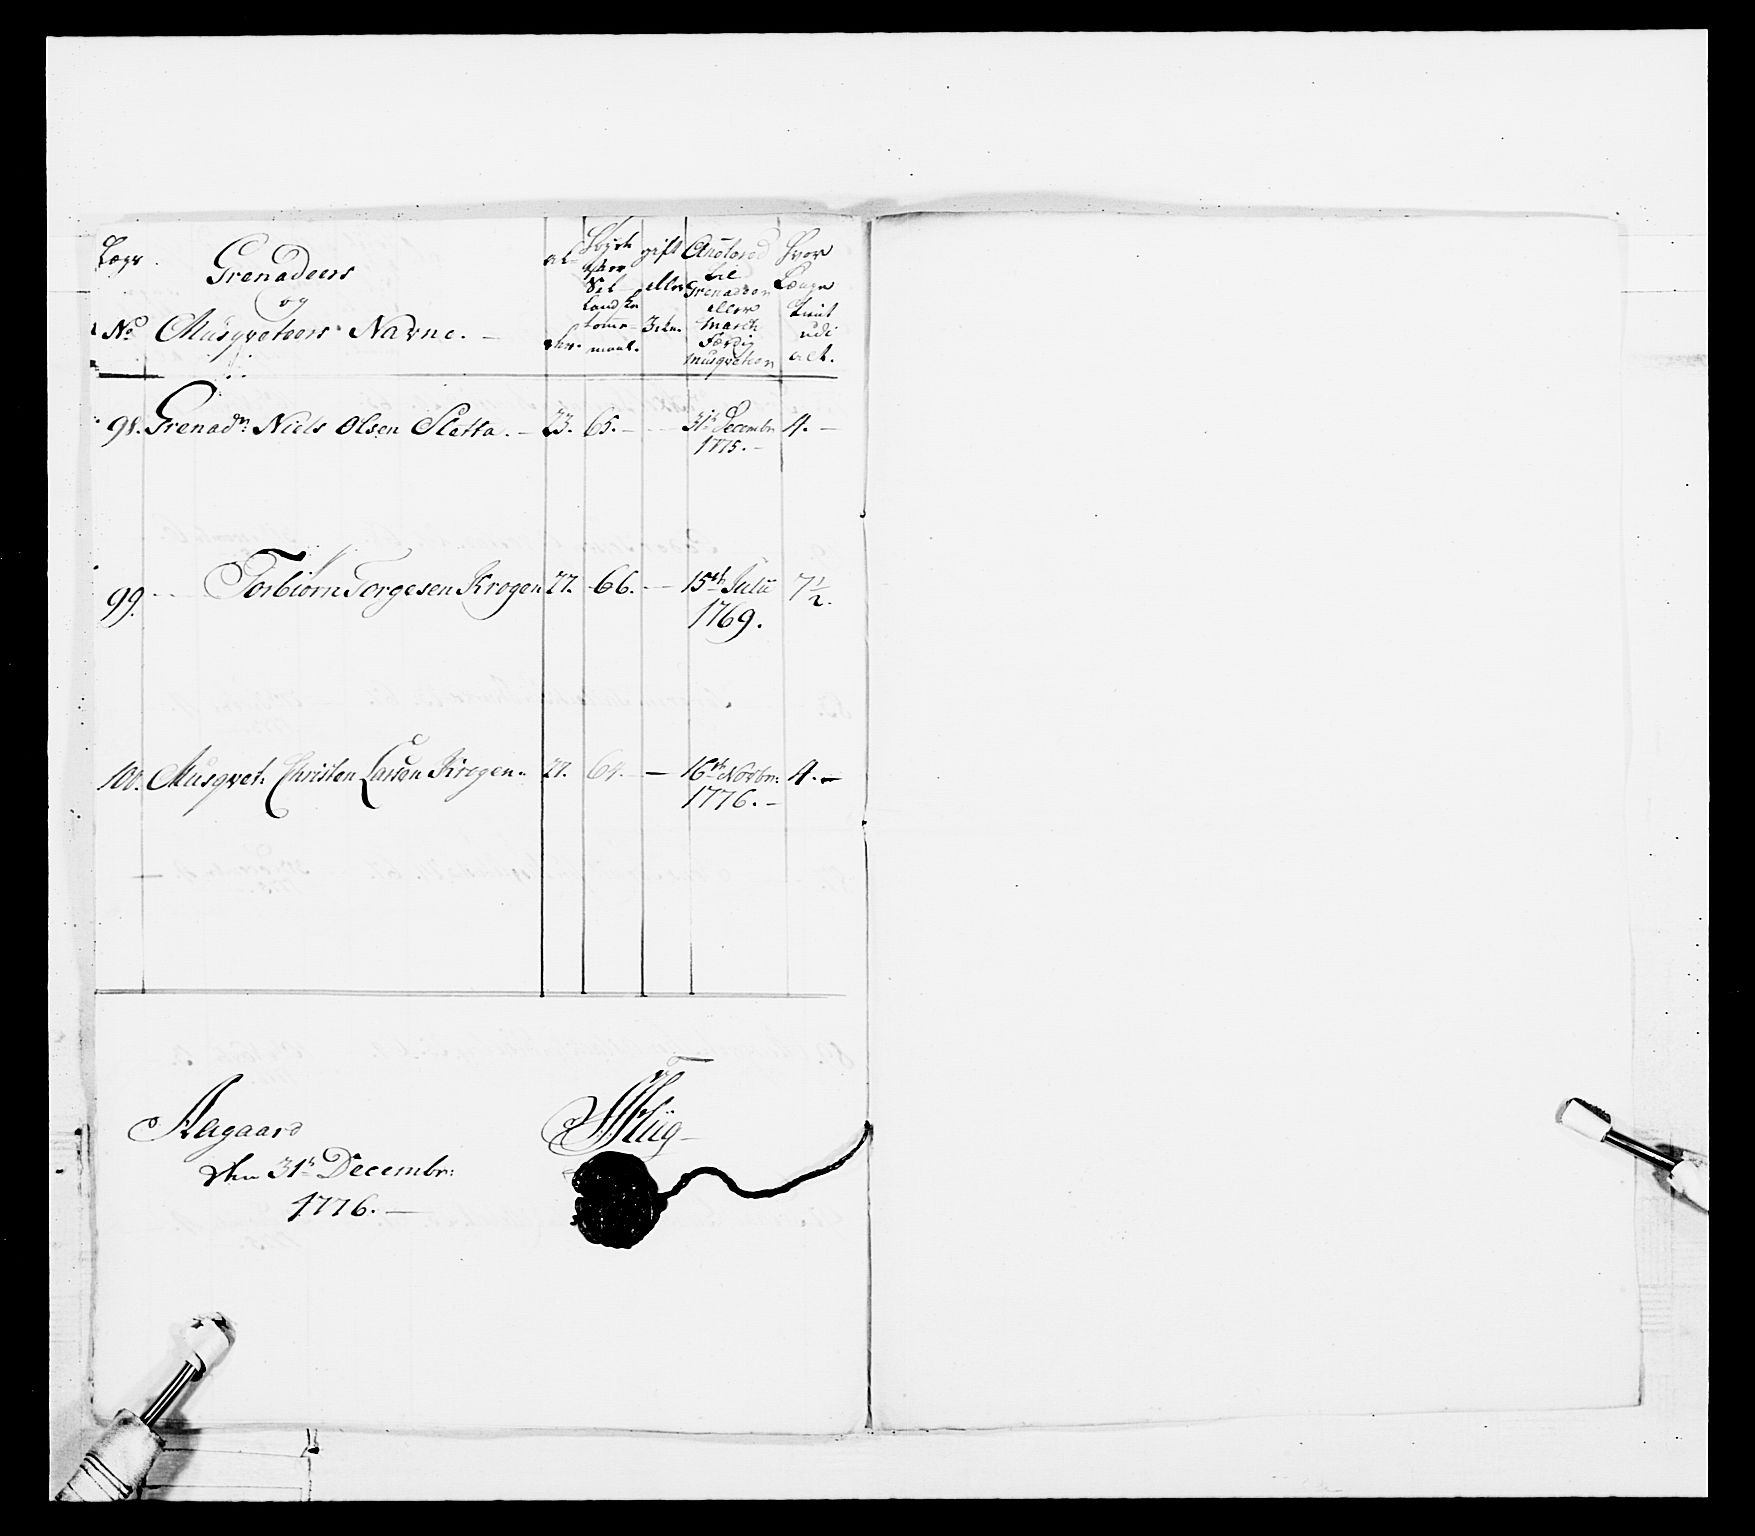 Lægs
No
Grenadeers
og
Musqveteers Navne.
al-
der.
Høyde
efter
Sel-
land
komme-
maal.
gift
eller
Ictn.
Anteret
til
Grenadeer
eller
March
Færdig
Musqveteer
Hvor
Længe
tient
udi
alt.
98. Grenadr: Niels Olsen Sletta. 23. 65. 31te Decembr 4.
1775.
99. Torbiørn Torgesen Krogen 27. 66. 15de Julii 7 1/2.
1769.
100. Musqvet: Christen Larsen Krogen. 27. 64. 16de Novbr: 4.
1776.
Aagaard
den 31te Decembr:
1776.